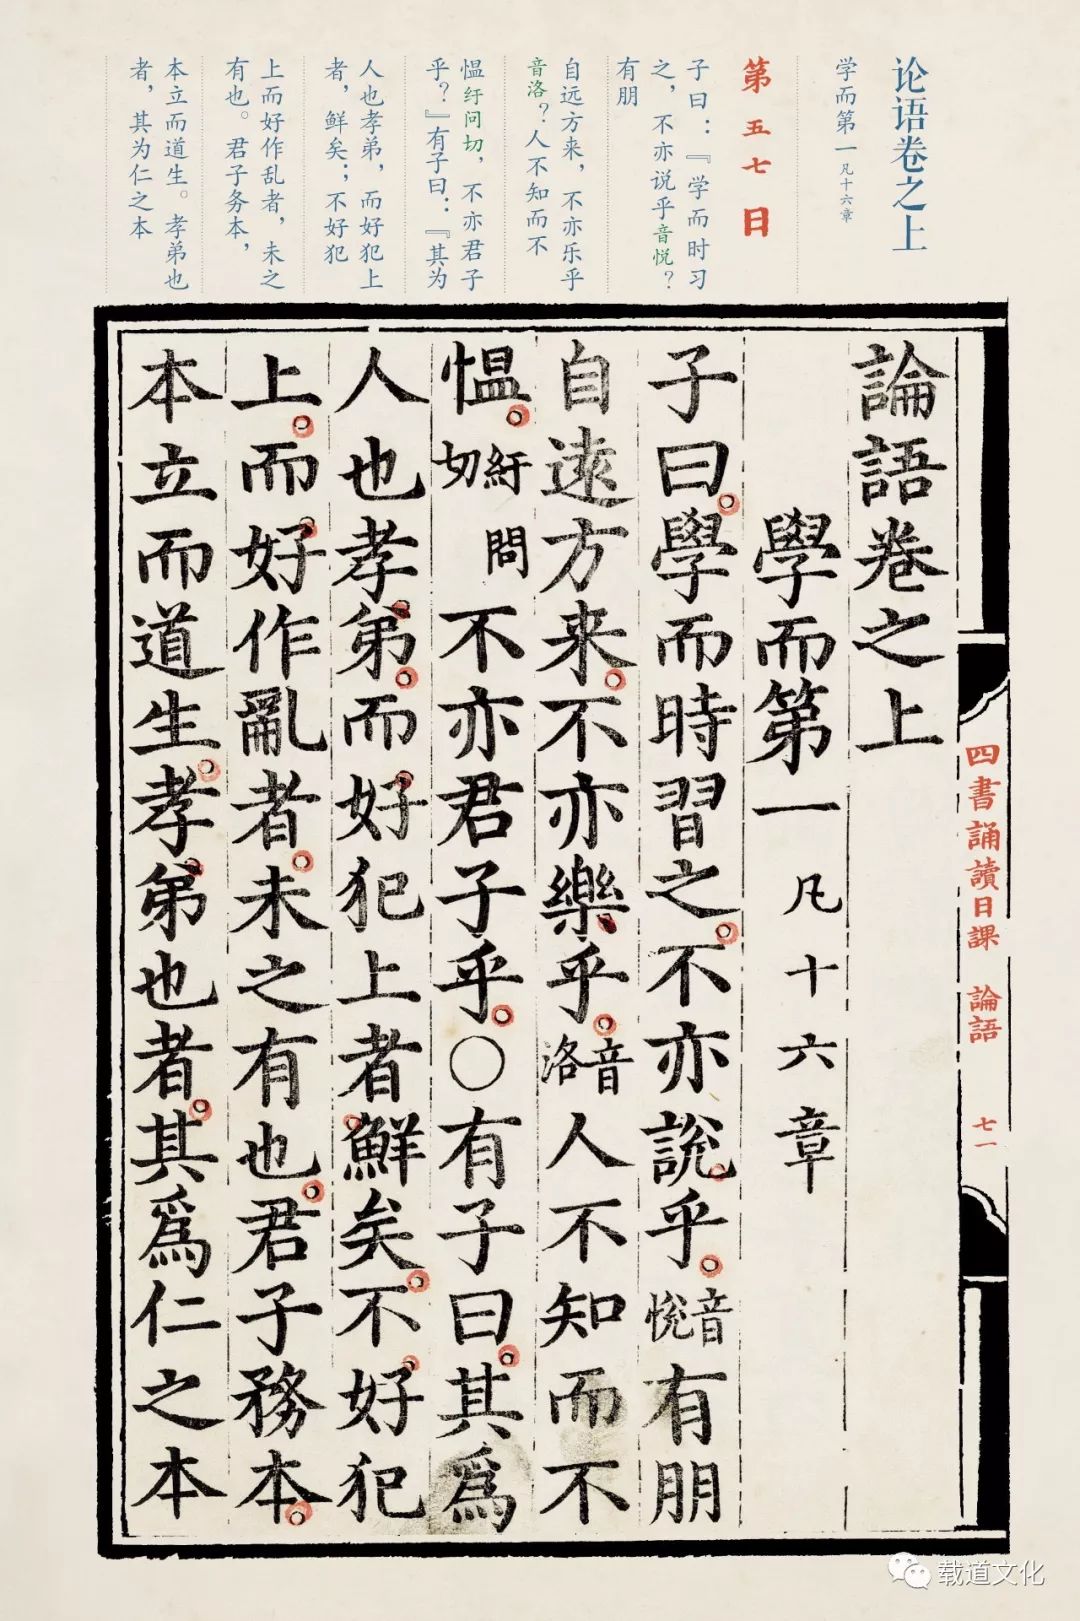 论语卷之上
学而第一 凡十六章
第五七日
子曰：『学而时习
之，不亦说乎音悦？
有朋
自远方来，不亦乐乎
音洛？人不知而不
愠纡问切，不亦君子
乎？』有子曰：『其为
人也孝弟，而好犯上
者，鲜矣；不好犯
上而好作乱者，未之
有也。君子务本，
本立而道生。孝弟也
者，其为仁之本
論語卷之上
學而第一 凡十六章
子曰。學而時習之。不亦說乎。音悅有朋
自逺方来。不亦樂乎。音洛人不知而不
愠。紆問切不亦君子乎。〇有子曰。其爲
人也孝弟。而好犯上者鮮矣。不好犯
上。而好作亂者。未之有也。君子務本。
本立而道生。孝弟也者。其爲仁之本
四書誦讀日課 論語 七一
载道文化